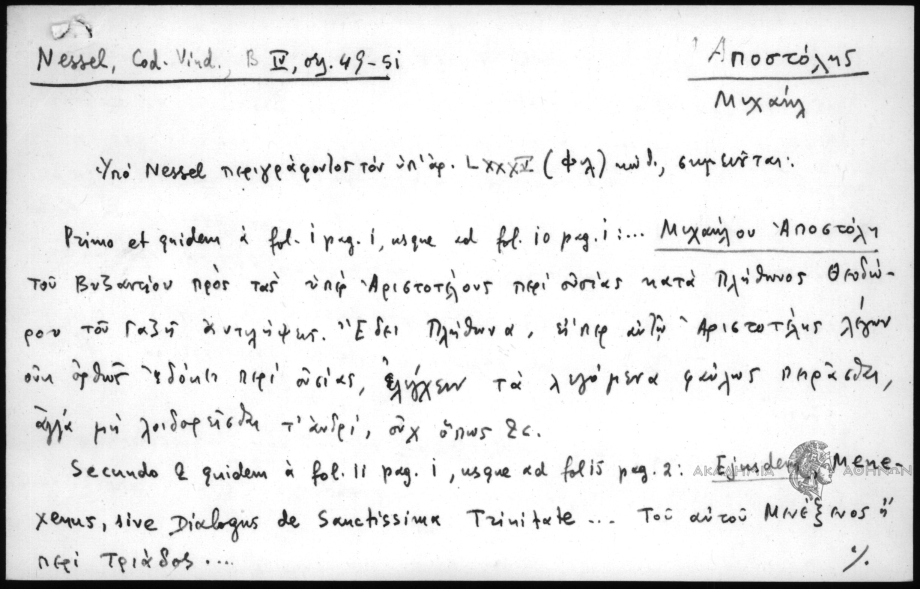 Nessel, Cod. Vind., B IV, σχ. 49-51
Ἀποστόλης
Μιχαὴλ
Ὑπὸ Nessel περιγράφοντος τὸν ὑπ' ἀρ. LXXXV (φλ) κώδ., σημειοῦται:
Primo et quidem à fol. 1 pag. 1, usque ad fol. 10 pag. 1: ... Μιχαήλου Ἀποστόλη
τοῦ Βυζαντίου πρὸς τὰς ὑπὲρ Ἀριστοτέλους περὶ οὐσίας κατὰ Πλήθωνος Θεοδώ-
ρου τοῦ Γαζῆ ἀντιλήψεις. Ἔδει Πλήθωνα, εἴπερ αὐτῷ Ἀριστοτέλης λέγων
οὐκ ὀρθῶς ἐδόκει περὶ οὐσίας, ἐλέγχειν τὰ λεγόμενα φαύλως πειρᾶσθαι,
ἀλλὰ μὴ λοιδορεῖσθαι τ' ἀνδρί, οὐχ ὅπως &c.
Secundo & quidem à fol. 11 pag. 1, usque ad fol 15 pag. 2: Ejusdem Mene-
xenus, sive Dialogus de Sanctissima Trinitate ... Τοῦ αὐτοῦ Μενέξενος ἢ
περὶ Τριάδος ...
./.
ΑΚΑΔΗΜΙΑ ΑΘΗΝΩΝ